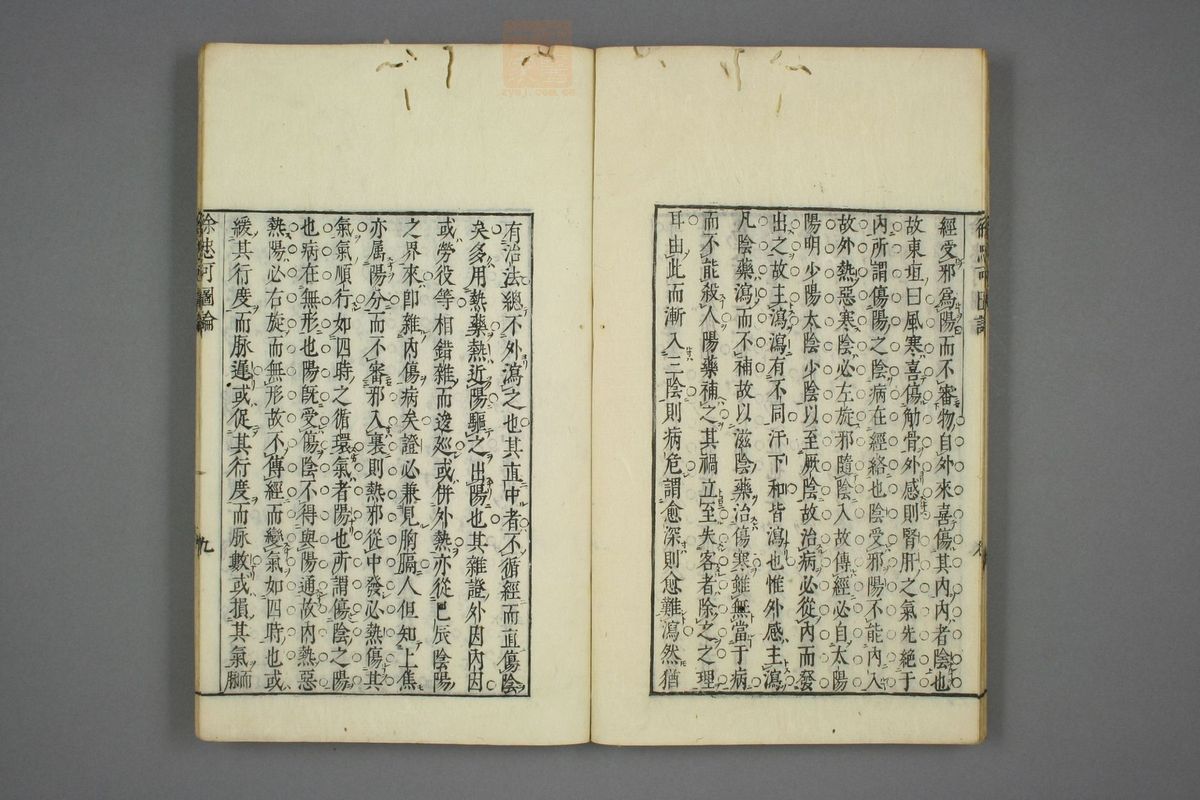 經受邪爲陽而不審物自外來喜傷其內內者陰也
故東垣曰風寒喜傷觔骨外感則腎肝之氣先絕于
內所謂傷陽之陰病在經絡也陰受邪陽不能內入
故外熱惡寒陰必左旋邪隨陰入故傳經必自太陽
陽明少陽太陰少陰以至厥陰故治病必從內而發
出之故主瀉瀉有不同汗下和皆瀉也惟外感主瀉
凡陰藥瀉而不補故以滋陰藥治傷寒雖無當于病
而不能殺人陽藥補之其禍立至失客者除之之理
耳由此而漸入三陰則病危謂愈深則愈難瀉然猶
有治法總不外瀉之也其直中者不循經而直傷陰
矣多用熱藥熱近陽驅之出陽也其雜證外因內因
或勞役等相錯雜而逡廵或併外熱亦從巳辰陰陽
之界來卽雜內傷病矣證必兼見胸膈人但知上焦
亦属陽分而不審邪入裏則熱邪從中發必熱傷其
氣氣順行如四時之循環氣者陽也所謂傷陰之陽
也病在無形也陽旣受傷陰不得與陽通故內熱惡
熱陽必右旋而無形故不傳經而變氣如四時也或
緩其行度而脉遲或促其行度而脉數或損其氣而脈
徐忠可圖論
九